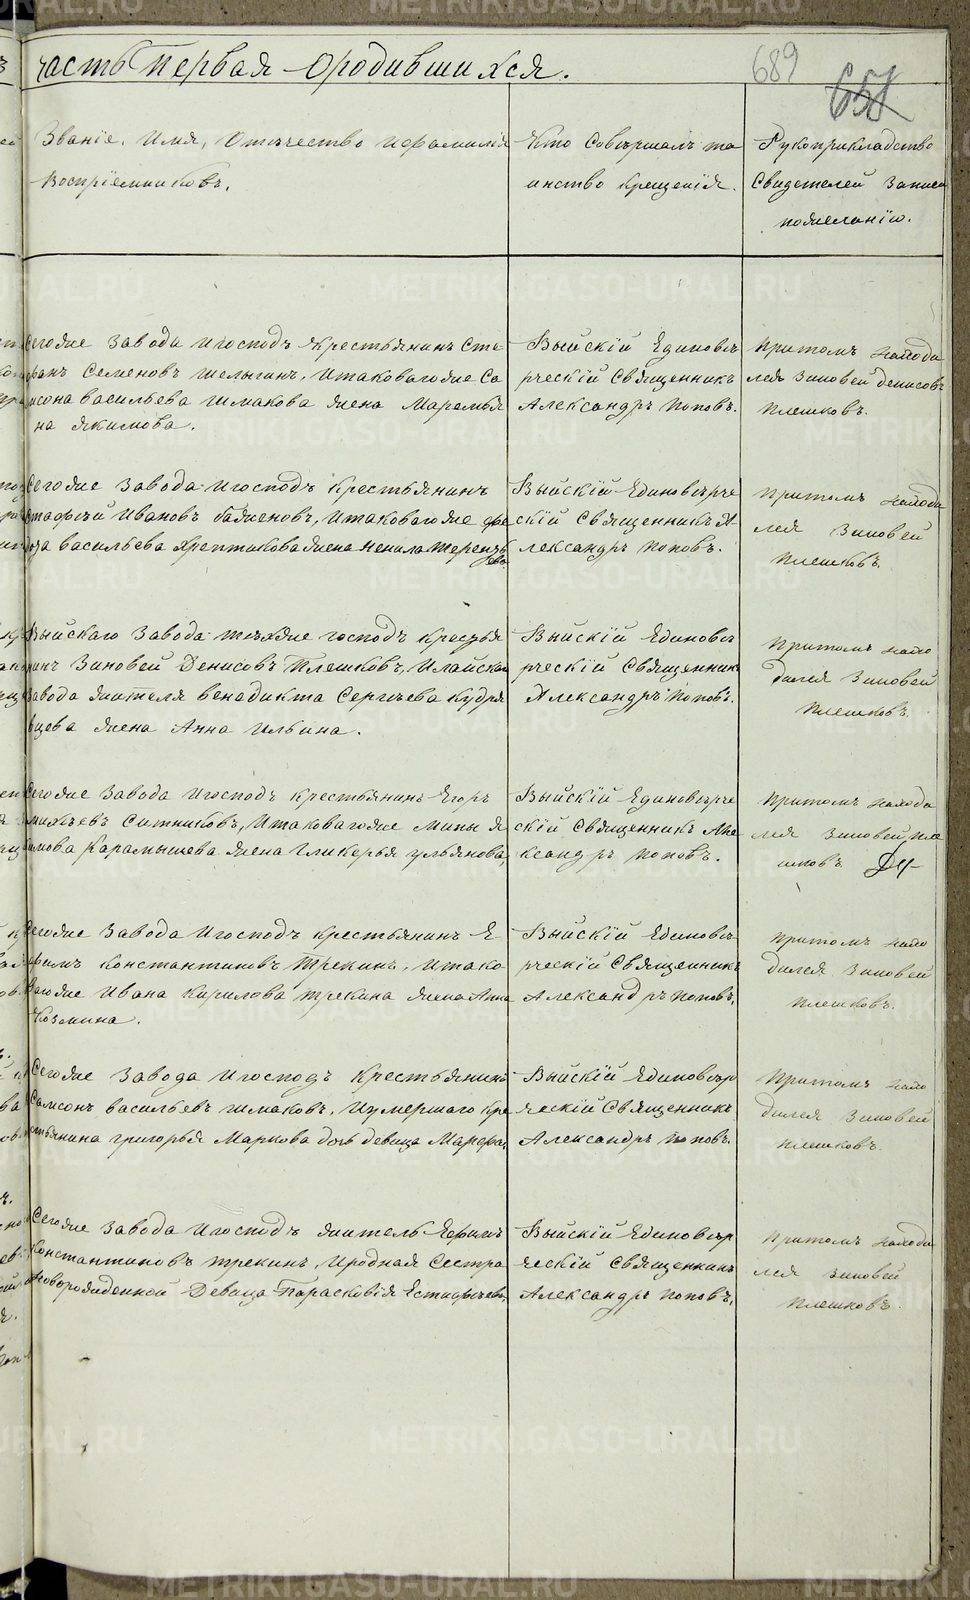 Часть Первая о родившихся.
689
651
Званіе, Имя, Отечество и фамилія
Воспріемниковъ.
Кто Совершалъ та
инство крещенія.
Рукоприкладство
Свидетелей Записи
пожеланію.
Сегоже Завода Игосподъ крестьянинъ Сте
фанъ Семеновъ Шелыгинъ, Итаковагоже Са
мсона Васильева Гимакова жена Маремья
на Якимова.
Выйскій Единовѣ
рческій Священникъ
Александръ Поповъ.
Притомъ находи
лся Зиновей Денисовъ
Плешковъ.
Сегоже Завода Игосподъ крестьянинъ
Иванъ Итаковагоже
Васильева жена Ненила Терентье
ва
Выйскій Единовѣрче
скій Священникъ А
лександръ Поповъ.
Притомъ находи
лся Зиновей
Плешковъ.
Выйскаго Завода техже господъ крестья
нинъ Зиновей Денисовъ Плешковъ, Илайскаго
Завода жителя Венадикта Сергиева Кудря
вцева жена Анна Ильина.
Выйскій Единовѣ
рческій Священник
Александръ Поповъ.
Притомъ нахо
дился Зиновей
Плешковъ.
Сегоже Завода Игосподъ крестьянинъ Егоръ
Ситниковъ, Итаковагоже Мины Я
кимова Карамышева жена Гликерья Ульянова,
Выйскій Единовѣрче
скій Священникъ Але
ксандръ Поповъ.
Притомъ находи
лся Зиновей Пле
шковъ
Сегоже Завода Игосподъ крестьянинъ Е
фимъ Константиновъ Трекинъ, Итако
вагоже Ивана Кирилова Трекина жена Анна
Козмина.
Выйскій Единовѣ
рческій Священникъ
Александръ Поповъ,
Притомъ нахо
дился Зиновей
Плешковъ.
Сегоже Завода Игосподъ Крестьянинъ
Самсонъ Васильевъ Гимаковъ, Иумершаго кре
стьянина Григорья Маркова дочь девица Марфа,
Выйскій Единовѣр
ческій Священникъ
Александръ Поповъ.
Притомъ нахо
дился Зиновей
Плешковъ.
Сегоже Завода Игосподъ житель Ефимъ
Константиновъ Трекинъ, Иродная Сестра
новорожденной Девица Парасковія Естафьева,
Выйскій Единовѣр
ческій Священникъ
Александръ Поповъ,
Притомъ находи
лся Зиновей
Плешковъ.
METRIKI.GASO-URAL.RU